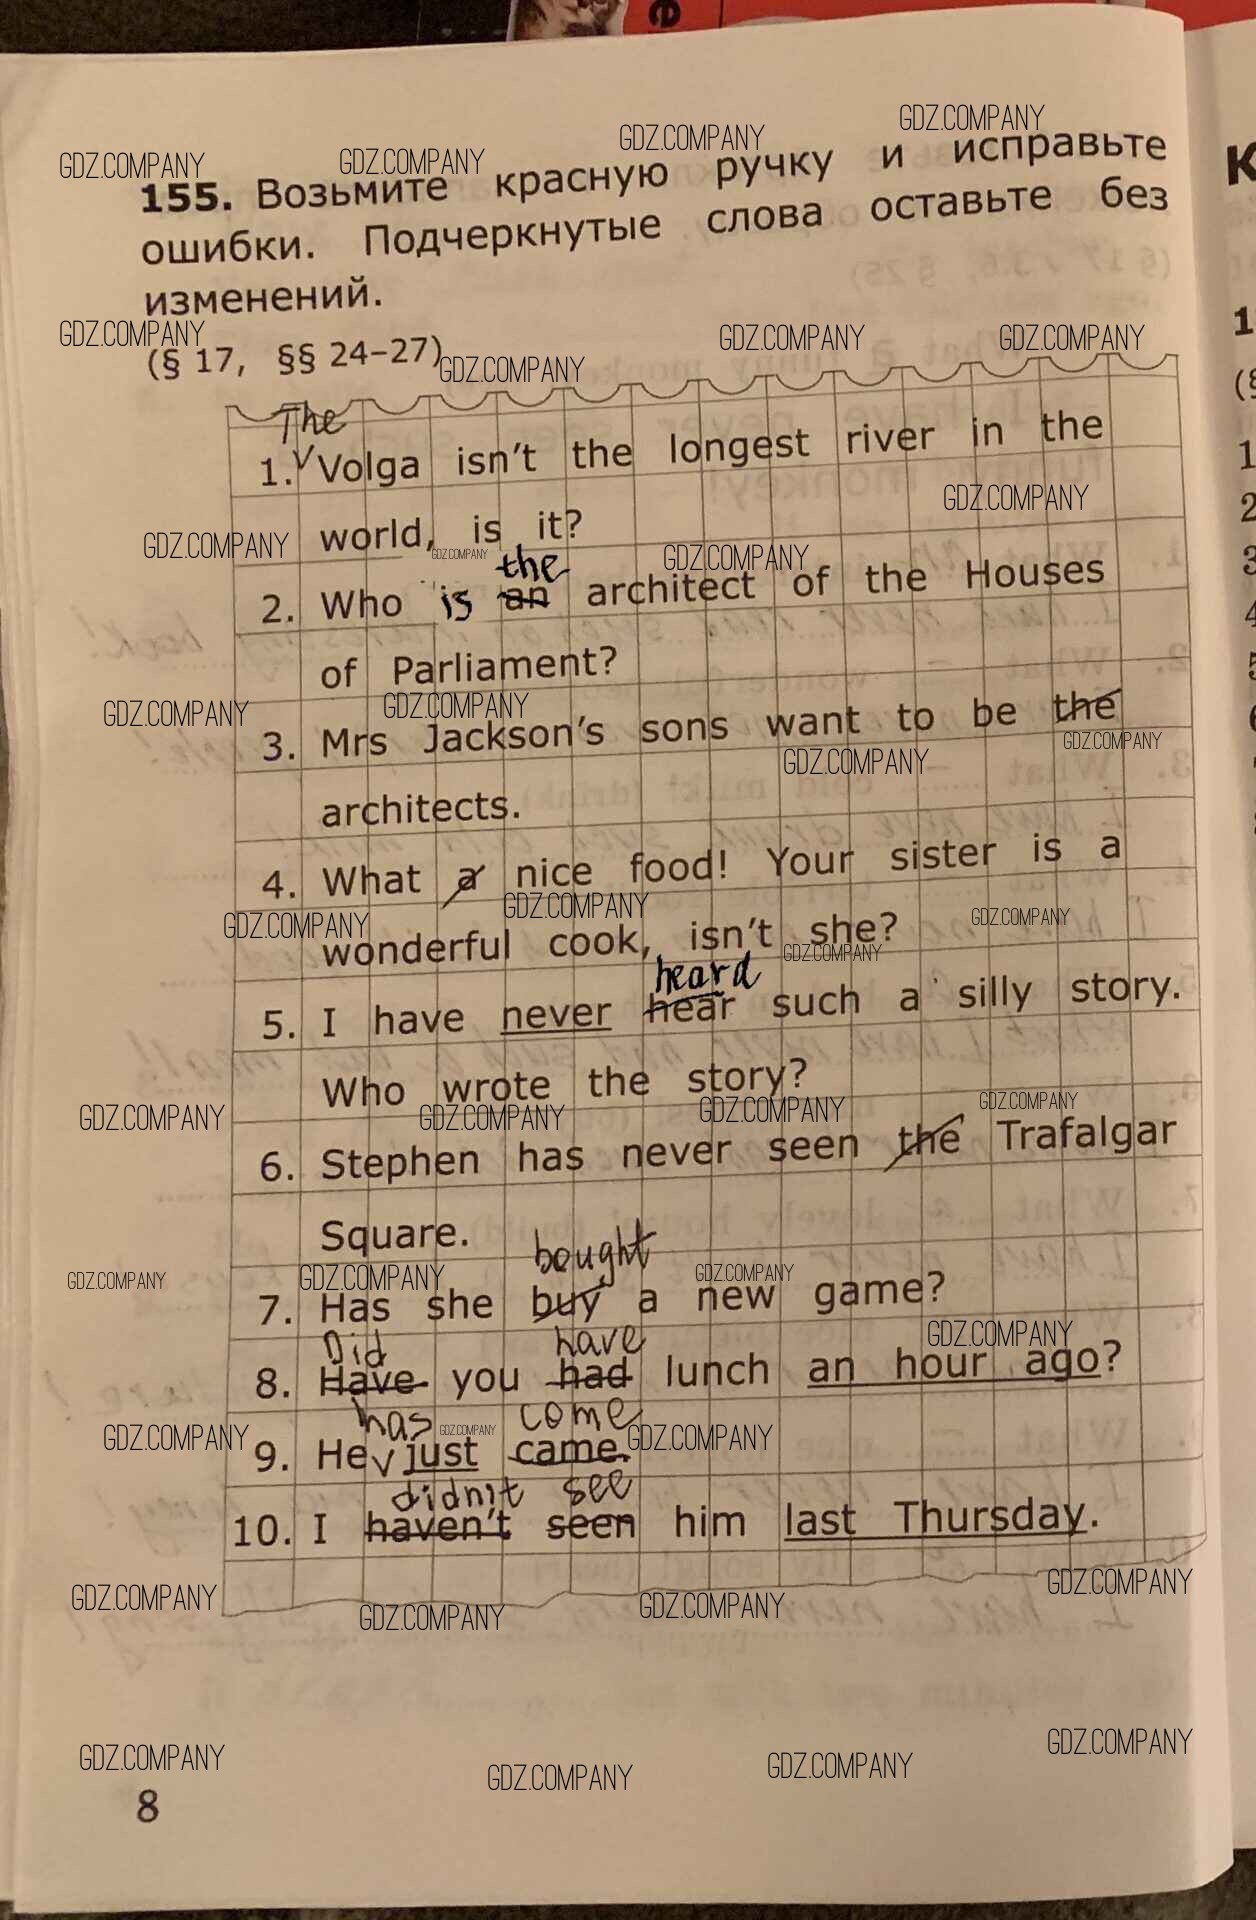 GDZ.COMPANY GDZ.COMPANY GDZ.COMPANY GDZ.COMPANY
155. Возьмите красную ручку и исправьте
ошибки. Подчеркнутые слова оставьте без
изменений.
GDZ.COMPANY GDZ.COMPANY GDZ.COMPANY
(§ 17, §§ 24–27) GDZ.COMPANY
The
1. Volga isn't the longest river in the
GDZ.COMPANY
world, is it?
GDZ.COMPANY GDZ.COMPANY GDZ.COMPANY
the
2. Who is an architect of the Houses
of Parliament?
GDZ.COMPANY GDZ.COMPANY
3. Mrs Jackson's sons want to be the
GDZ.COMPANY GDZ.COMPANY
architects.
4. What a nice food! Your sister is a
GDZ.COMPANY GDZ.COMPANY GDZ.COMPANY
wonderful cook, isn't she?
GDZ.COMPANY
heard
5. I have never hear such a silly story.
Who wrote the story?
GDZ.COMPANY GDZ.COMPANY GDZ.COMPANY GDZ.COMPANY
6. Stephen has never seen the Trafalgar
Square.
bought
GDZ.COMPANY GDZ.COMPANY GDZ.COMPANY
7. Has she buy a new game?
Did have GDZ.COMPANY
8. Have you had lunch an hour ago?
has come
GDZ.COMPANY GDZ.COMPANY GDZ.COMPANY
9. He just came.
didn't see
10. I haven't seen him last Thursday.
GDZ.COMPANY GDZ.COMPANY GDZ.COMPANY GDZ.COMPANY
GDZ.COMPANY GDZ.COMPANY GDZ.COMPANY GDZ.COMPANY
8